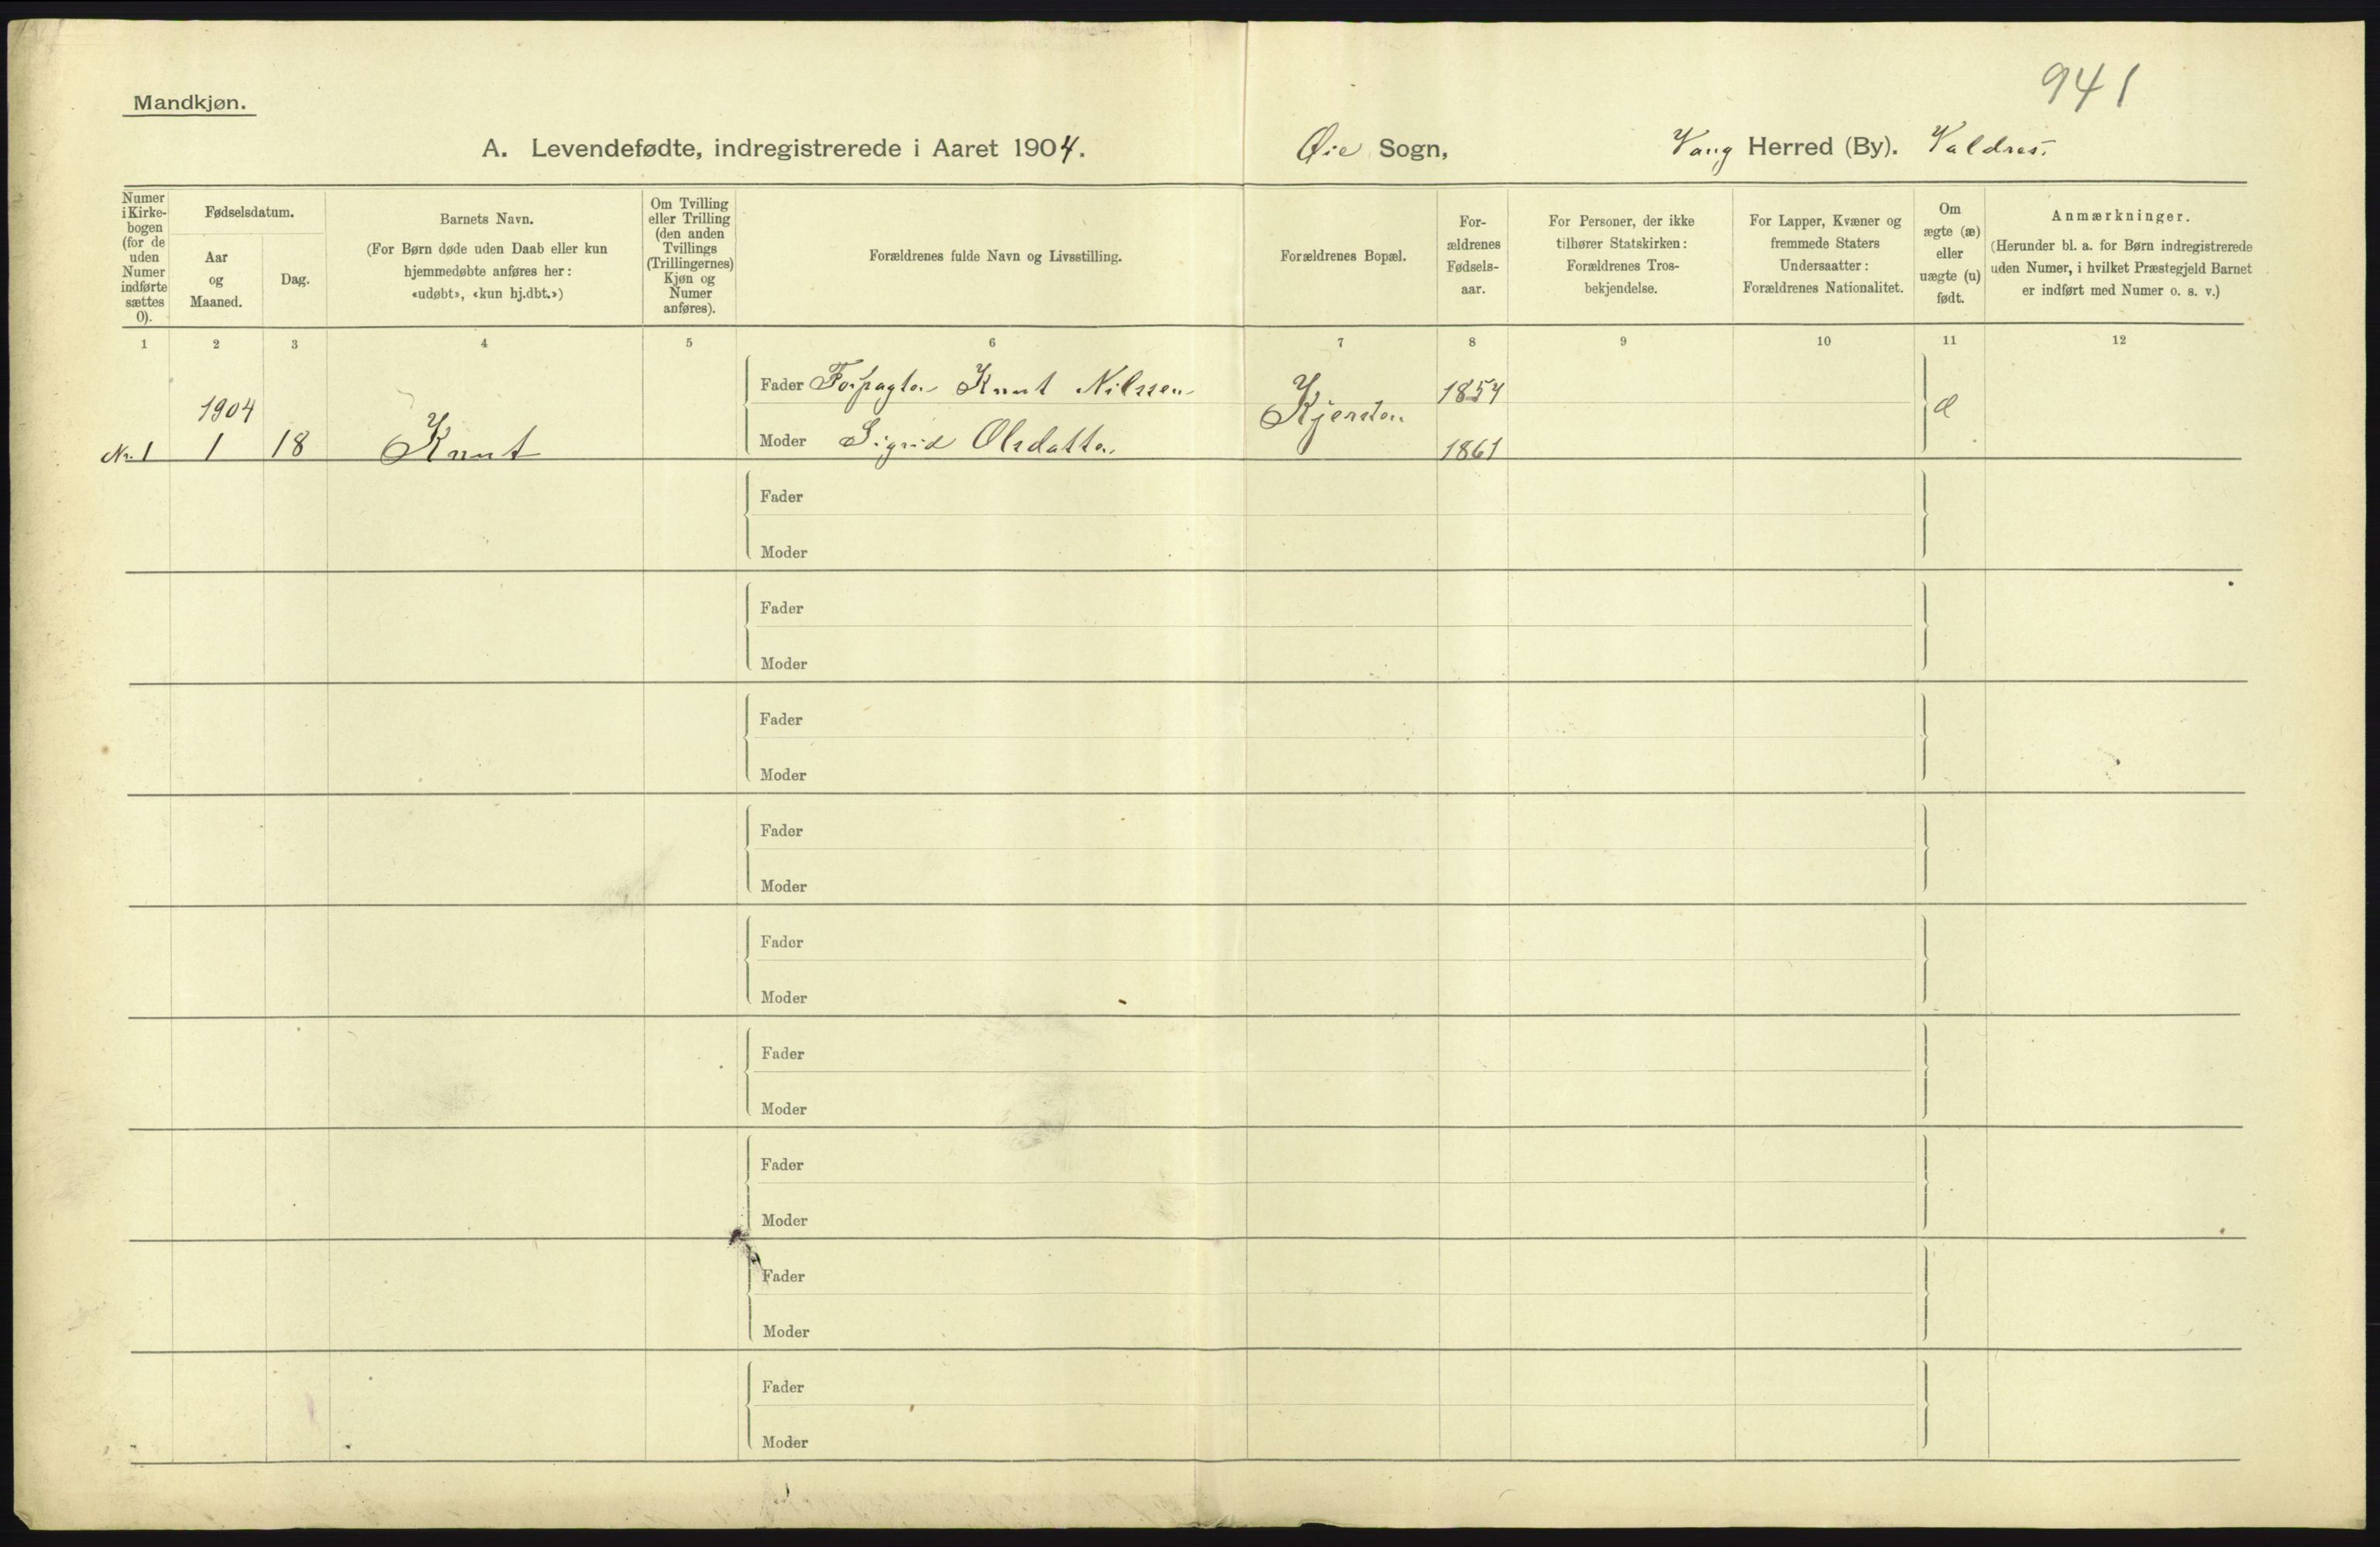 941
Mandkjøn.
A. Levendefødte, indregistrerede i Aaret 1904. Øie Sogn, Vang Herred (By). Valdres.
Numer i Kirke-bogen (for de uden Numer indførte sættes 0).
Fødselsdatum.
Aar og Maaned.
Dag.
Barnets Navn.
(For Børn døde uden Daab eller kun hjemmedøbte anføres her: «udøbt», «kun hj.dbt.»)
Om Tvilling eller Trilling (den anden Tvillings (Trillingernes) Kjøn og Numer anføres).
Forældrenes fulde Navn og Livsstilling.
Forældrenes Bopæl.
For-ældrenes Fødsels-aar.
For Personer, der ikke tilhører Statskirken: Forældrenes Tros-bekjendelse.
For Lapper, Kvæner og fremmede Staters Undersaatter: Forældrenes Nationalitet.
Om ægte (æ) eller uægte (u) født.
Anmærkninger.
(Herunder bl. a. for Børn indregistrerede uden Numer, i hvilket Præstegjeld Barnet er indført med Numer o. s. v.)
1 2 3 4 5 6 7 8 9 10 11 12
Fader Forpagter Knut Nilssen 1854
1904 æ
Nr. 1 1 18 Knut Moder Sigrid Olsdatter 1861
Fader
Moder
Fader
Moder
Fader
Moder
Fader
Moder
Fader
Moder
Fader
Moder
Fader
Moder
Fader
Moder
Fader
Moder